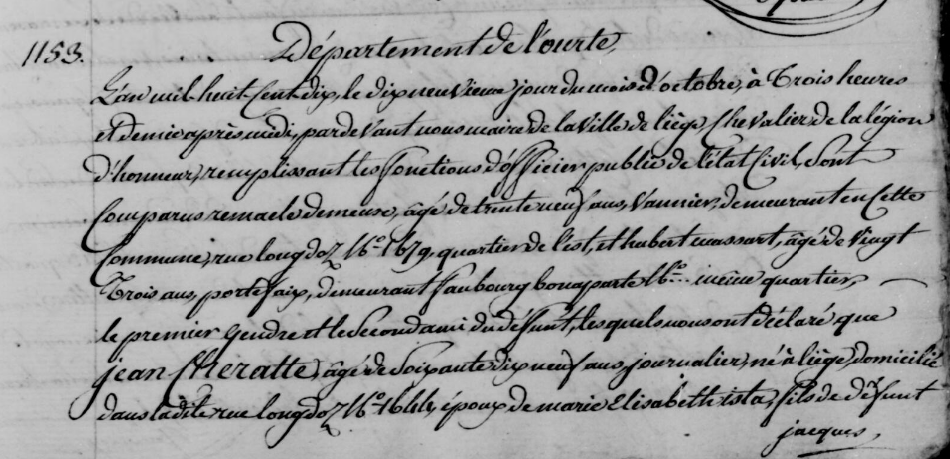 1153. Département de l'ourte,
L'an mil huit Cent dix, le dix neuvieme jour du mois d'octobre, à Trois heures
et demie après midi, par devant nous maire de la ville de liège, Chevalier de la légion
d'honneur, remplissant les fonctions d'officier public de l'état Civil, Sont
Comparus remacle demeuse, âgé de trente neuf ans, Vannier, demeurant en Cette
Commune, rue longdoz N.o 1679, quartier de l'est, et hubert massart, âgé de Vingt
Trois ans, portefaix, demeurant faubourg bonaparte N.o ... même quartier,
le premier gendre et le Second ami du défunt, lesquels nous ont déclaré que
jean Cheratte, âgé de Soixante dix neuf ans, journalier, né à liège, domicilié
dans ladite rue longdoz N.o 1644, époux de marie Elisabeth ista, fils de défunt
jacques,